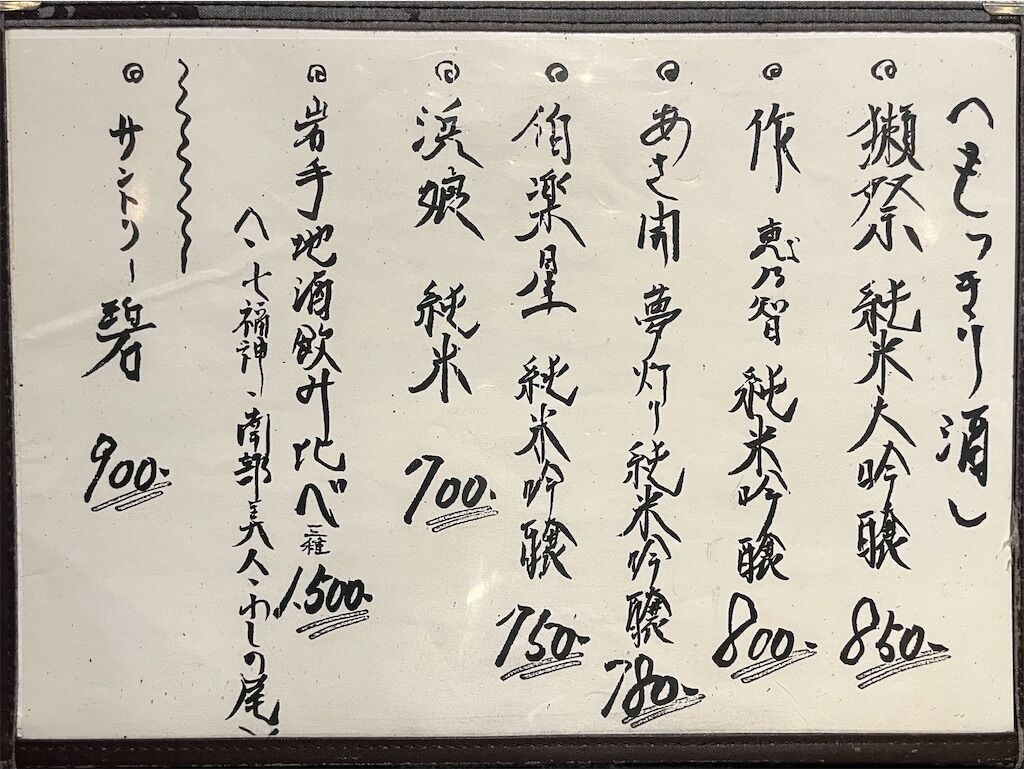 〜もっきり酒〜
◎ 獺祭 純米大吟醸 850-
◎ 作 恵乃智 純米吟醸 800-
◎ あさ開 夢灯り 純米吟醸 780-
◎ 伯楽星 純米吟醸 750-
◎ 浜娘 純米 700-
◎ 岩手地酒飲み比べ 三種 1,500-
〜七福神、南部美人、わしの尾〜
◎ サントリー 碧 900-